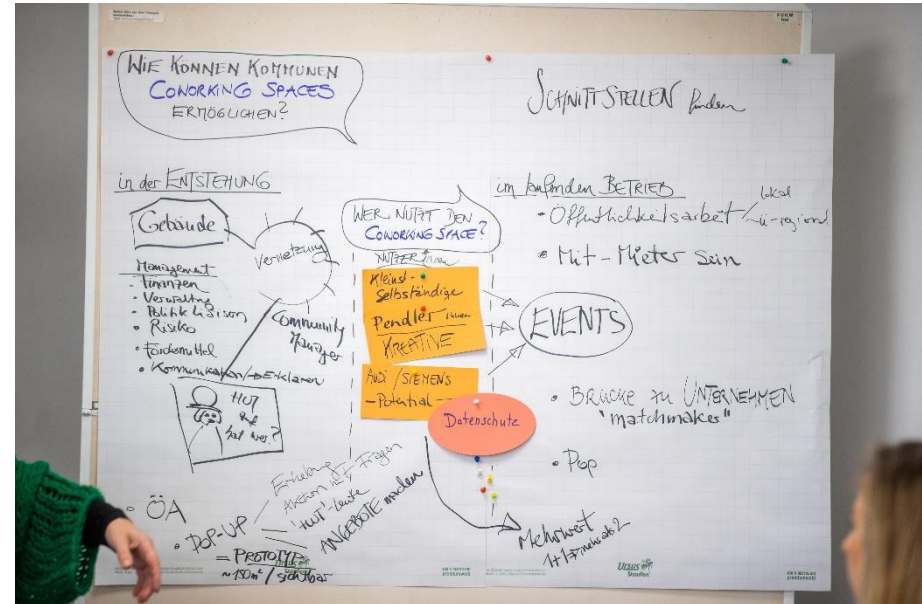 WIE KÖNNEN KOMMUNEN
COWORKING SPACES
ERMÖGLICHEN?
SCHNITTSTELLEN finden
in der ENTSTEHUNG
Gebäude
Vernetzung
Management
- Finanzen
- Verwaltung
- Politik Liaison
• Risiko
• Fördermittel
• Kommunikation/→Erklären
Community
Manager
HUT
auf
hat wer?
• ÖA
• POP-UP
Erhebung
Aktion ist, Fragen
"HUT"-Leute
ANGEBOTE machen
= PROTOTYP
~150m² / sichtbar
WER NUTZT DEN
COWORKING SPACE?
NUTZER*innen
Kleinst-
Selbständige
Pendler innen
KREATIVE
AUDI / SIEMENS
- Potential -
Datenschutz
Mehrwert
1+1 mehr als 2
im laufenden BETRIEB
• Öffentlichkeitsarbeit
lokal
ü-regional
• Mit-Mieter sein
EVENTS
• BRÜCKE zu UNTERNEHMEN
"matchmaker"
• Pop
Ursus
Staufen